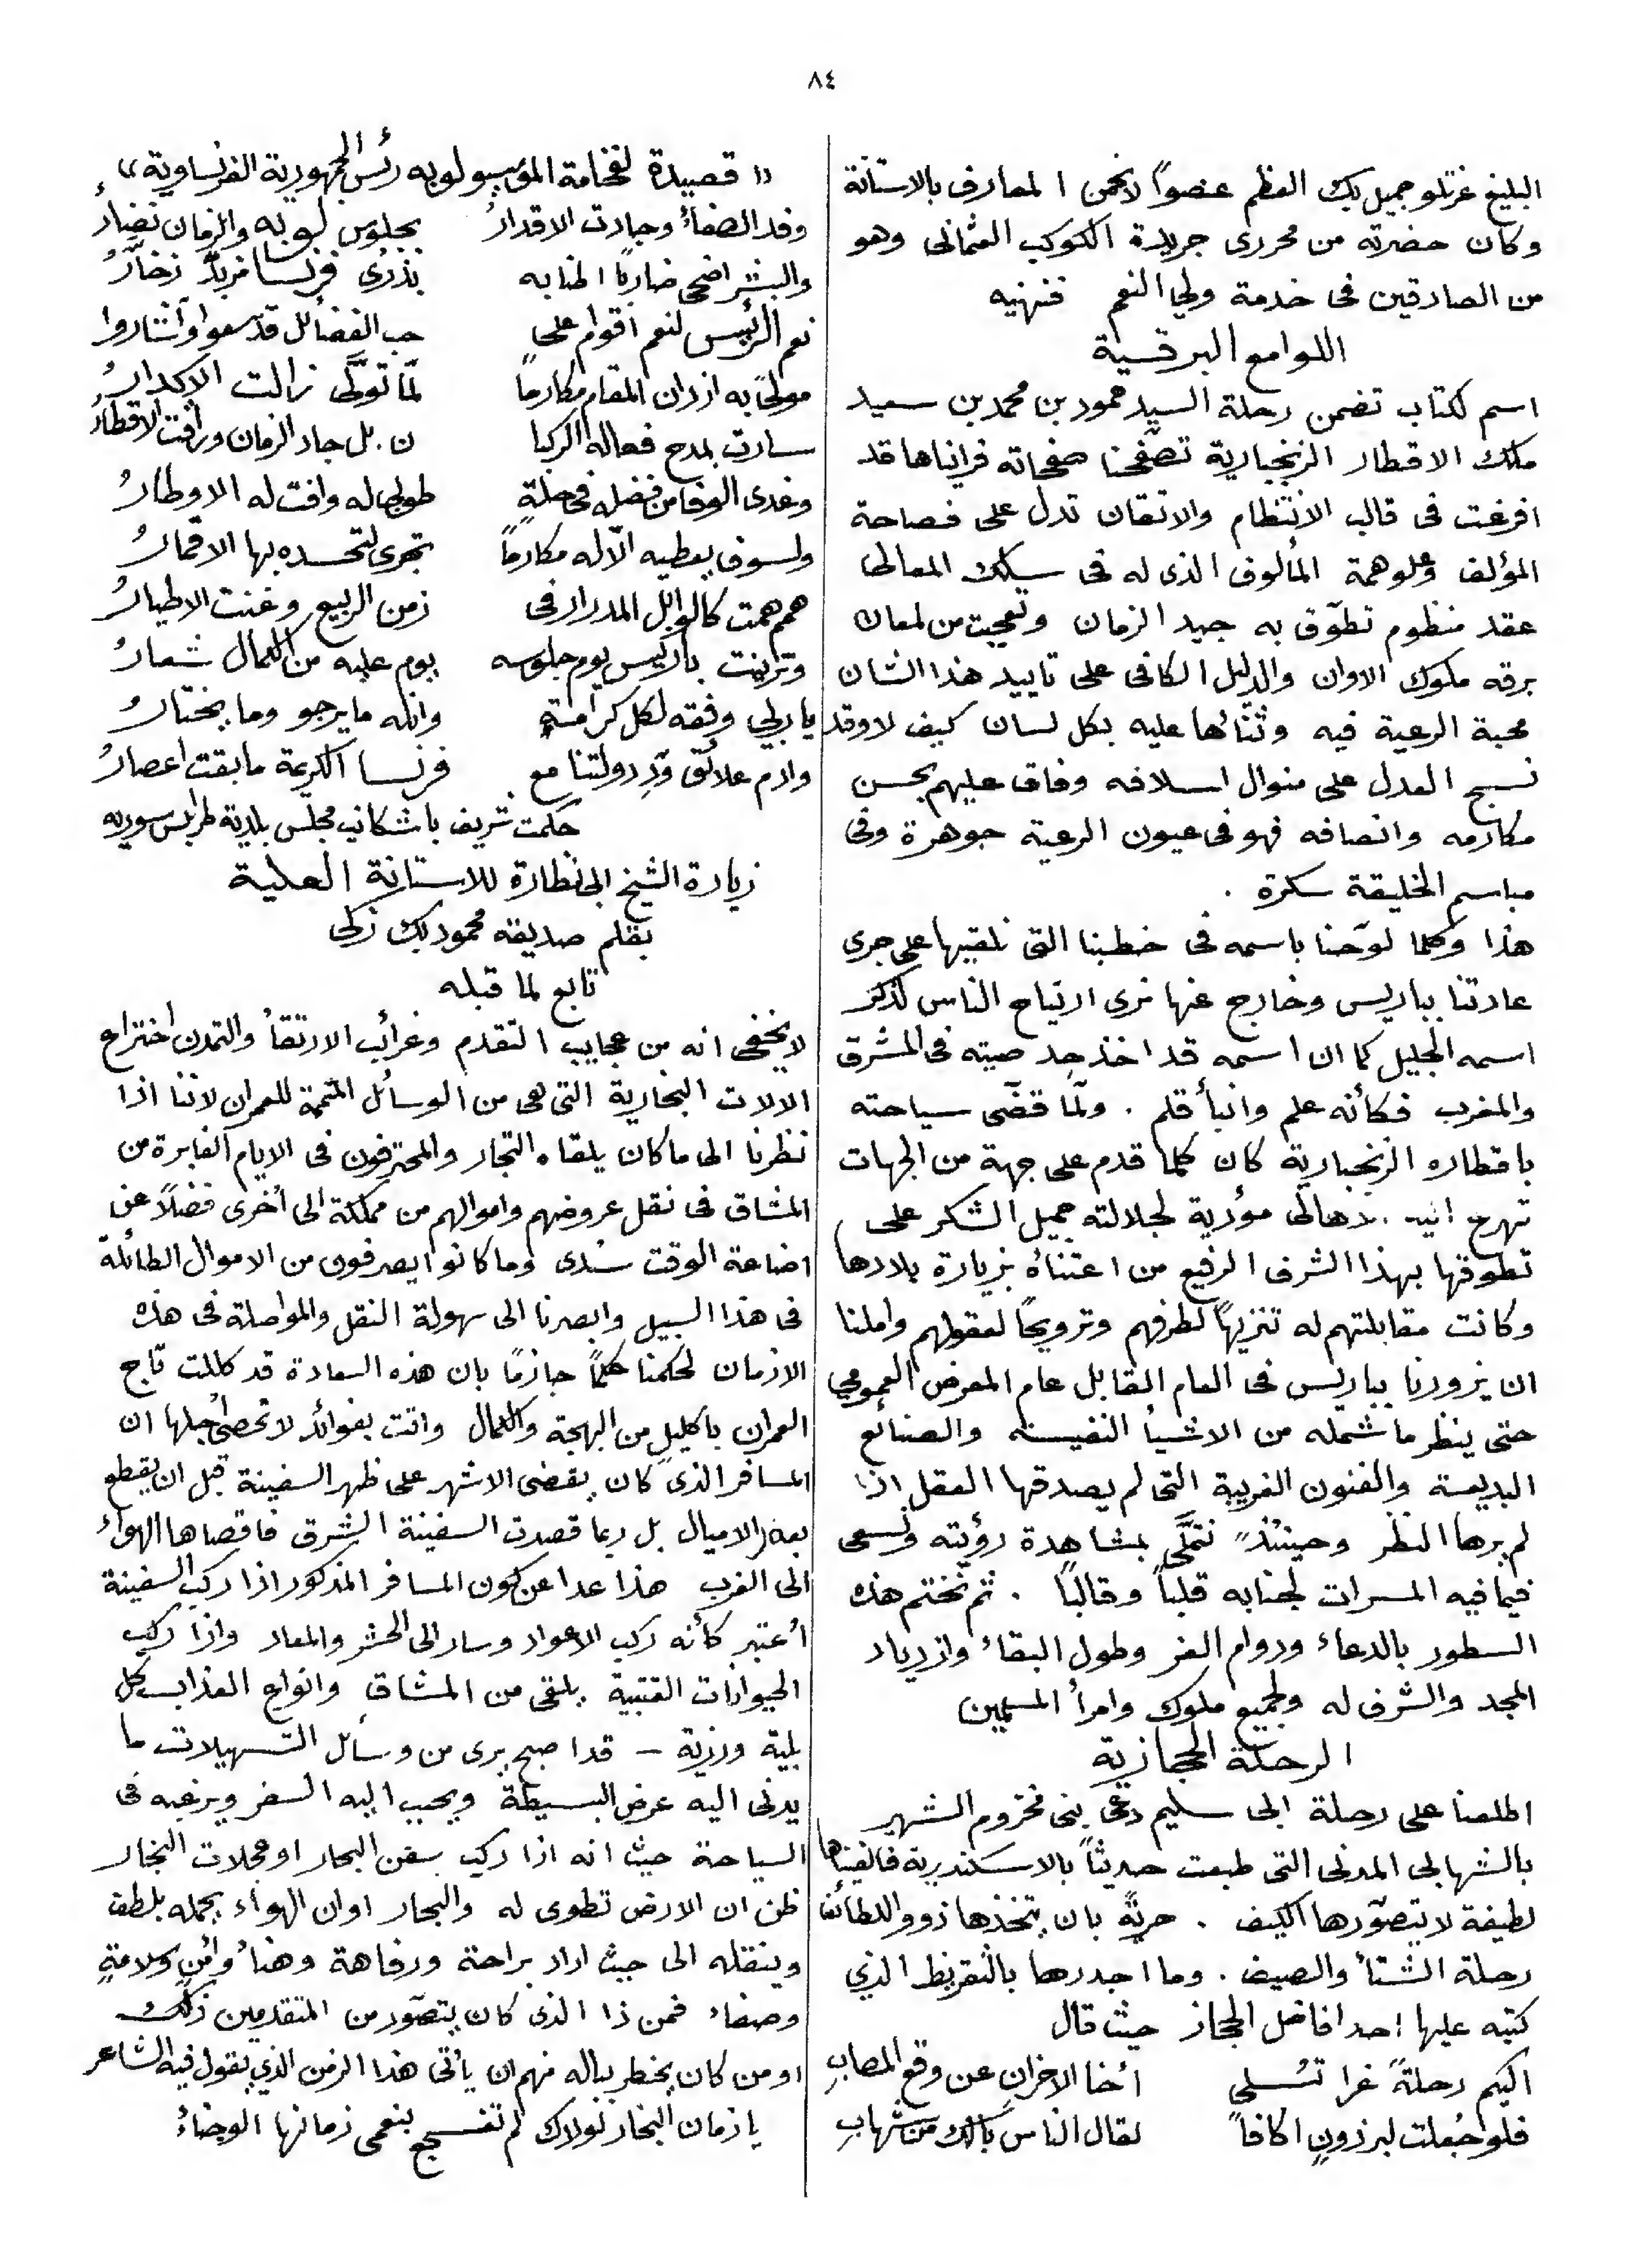 ٨٤
البليغ عزتلو جميل بك العظم عضواً لانجمن المعارف بالاستانة
وكان حضرته من محررى جريدة الكوكب العثمانى وهو
من الصادقين فى خدمة ولي النعم فنهنيه
اللوامع البرقية
اسم لكتاب تضمن رحلة السيد حمود بن محمد بن سعيد
ملك الاقطار الزنجبارية تصفّحنا صفحاته فرايناها قد
افرغت فى قالب الانتظام والاتقان تدل على فصاحة
المؤلف وعلو همة المألوف الذى له فى سلك المعالى
عقد منظوم تطوّق به جيد الزمان وتعجبت من لمعان
برقه ملوك الاوان والدليل الكافى على تاييد هذا الشان
محبة الرعية فيه وثنائها عليه بكل لسان كيف لا وقد
نسج العدل على منوال اسلافه وفاق عليهم بحسن
مكارمه وانصافه فهو فى عيون الرعية جوهرة وفى
مباسم الخليقة سكرة .
هذا وكلما لوّحنا باسمه فى خطبنا التى نلقيها على جرى
عادتنا بباريس وخارج عنها نرى ارتياح الناس لذكر
اسمه الجليل كما ان اسمه قد اخذ حد صيته فى المشرق
والمغرب فكأنه علم وانبأ قلم . ولمّا قضّى سياحته
باقطاره الزنجبارية كان كلما قدم على جهة من الجهات
تهرع اليه اهالى مؤدية لجلالته جميل الشكر على
تطوقها بهذا الشرف الرفيع من اعتنائه بزيارة بلادها
وكانت مقابلتهم له تنزيهاً لطرفهم وترويحاً لعقولهم واملنا
ان يزورنا بباريس فى العام القابل عام المعرض العمومي
حتى ينظر ما شمله من الاشيأ النفيسة والصنائع
البديعة والفنون الغريبة التى لم يصدقها العقل اذا
لم يرها النظر وحينئذٍ نتملّى بمشاهدة رؤيته ونسعى
فيما فيه المسرات لجنابه قلباً وقالباً . ثم نختم هذه
السطور بالدعاء ودوام العز وطول البقاء وازدياد
المجد والشرف له ولجميع ملوك وامرأ المسلمين
الرحلة الحجازية
اطلعنا على رحلة ابى سليم دعى بنى مخزوم الشهير
بالشهابى المدنى التى طبعت حديثاً بالاسكندرية فالفيناها
لطيفة لا يتصوّرها الكيف . حريّة بان يتخذها ذوو اللطائف
رحلة الشتأ والصيف . وما اجدرها بالتقريظ الذي
كتبه عليها احد افاضل الحجاز حيث قال
اليكم رحلةً غرا تسلى اخا الاحزانِ عن وقع المصابِ
فلو جُعلت لبرذونٍ اكافاً لقال الناس يالك من شهابِ
« قصيدة لفخامة الموسيو لوبه رئس الجمهورية الفرنساوية »
وفد الصفاءُ وجادت الاقدارُ بجلوس لوبه والزمان نضارُ
والبشر اضحى ضاربًا اطنابه بذرى فرنسا مزبدٌ زخّارُ
نعم الرئيس لنعم اقوام على حب الفضائل قد سعوا وأشاروا
مولىً به ازدان المقام مكارماً لمّا تولّى زالت الاكدارُ
سارت بمدح فعاله الركبا ن بل جاد الزمان وراقت الاقطارُ
وغدى الوفا من فضله فى حلةٍ طوبى له وافت له الاوطارُ
ولسوف يعطيه الآله مكارماً تجرى لتحسده بها الاقمارُ
همم همت كالوابل المدرار فى زمن الربيع وغنت الاطيارُ
وتزينت باريس يوم جلوسه يوم عليه من الكمال شعارُ
يا ربي وفقه لكل كرامة وانله ما يرجو وما يختارُ
وادم علائق ودِّ دولتنا مع فرنسا الكريمة ما بقت اعصارُ
حكمت شريف باشكاتب مجلس بلدية طرابلس سوريه
زيارة الشيخ ابى نظارة للاستانة العلية
بقلم صديقه محمود بك زكى
تابع لما قبله
لا يخفى انه من عجايب التقدم وغرائب الارتقأ والتمدن اختراع
الالات البخارية التى هى من الوسائل المتممة للعمران لاننا اذا
نظرنا الى ما كان يلقاه التجار والمحترفون فى الايام الغابرة من
المشاق فى نقل عروضهم واموالهم من مملكة الى أخرى فضلاً عن
اضاعة الوقت سُدى وما كانوا يصرفون من الاموال الطائلة
فى هذا السبيل وابصرنا الى سهولة النقل والمواصلة فى هذه
الازمان لحكمنا حكماً جازمًا بان هذه السعادة قد كللت تاج
العمران باكليلٍ من البهجة والكمال واتت بفوائد لا تحصى اجلها ان
المسافر الذى كان يقضى الاشهر على ظهر السفينة قبل ان يقطع
بعض الاميال بل ربما قصدت السفينة الشرق فاقصاها الهواء
الى الغرب هذا عدا عن كون المسافر المذكور اذا ركب السفينة
أعتبر كأنه ركب الاعواد وسار الى الحشر والمعاد واذا ركب
الحيوانات القتبية يلقى من المشاق وانواع العذاب كل
بلية ورزية – قد اصبح يرى من وسائل التسهيلات ما
يدنى اليه عرض البسيطة ويحبب اليه السفر ويرغبه فى
السياحة حيث انه اذا ركب سفن البحار او عجلات البخار
ظن ان الارض تطوى له والبحار او ان الهواء يحمله بلطف
وينقله الى حيث اراد براحة ورفاهة وهنأ وأمنٍ وسلامةٍ
وصفاء فمن ذا الذى كان يتصّور من المتقدمين ذلك
او من كان يخطر بباله منهم ان يأتى هذا الزمن الذي يقول فيه الشاعر
يا زمان البخار لولاك لم تفـجع بنعمى زمانها الوجناءُ